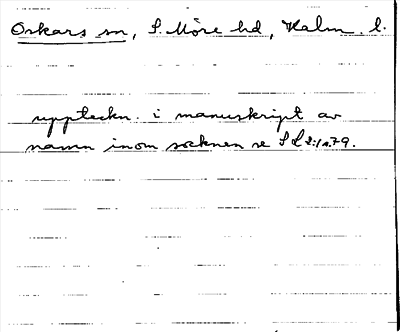 Oskars sn, S. Möre hd, Kalm. l.
uppteckn. i manuskript av
namn inom socknen se SL 2:1 s. 79.